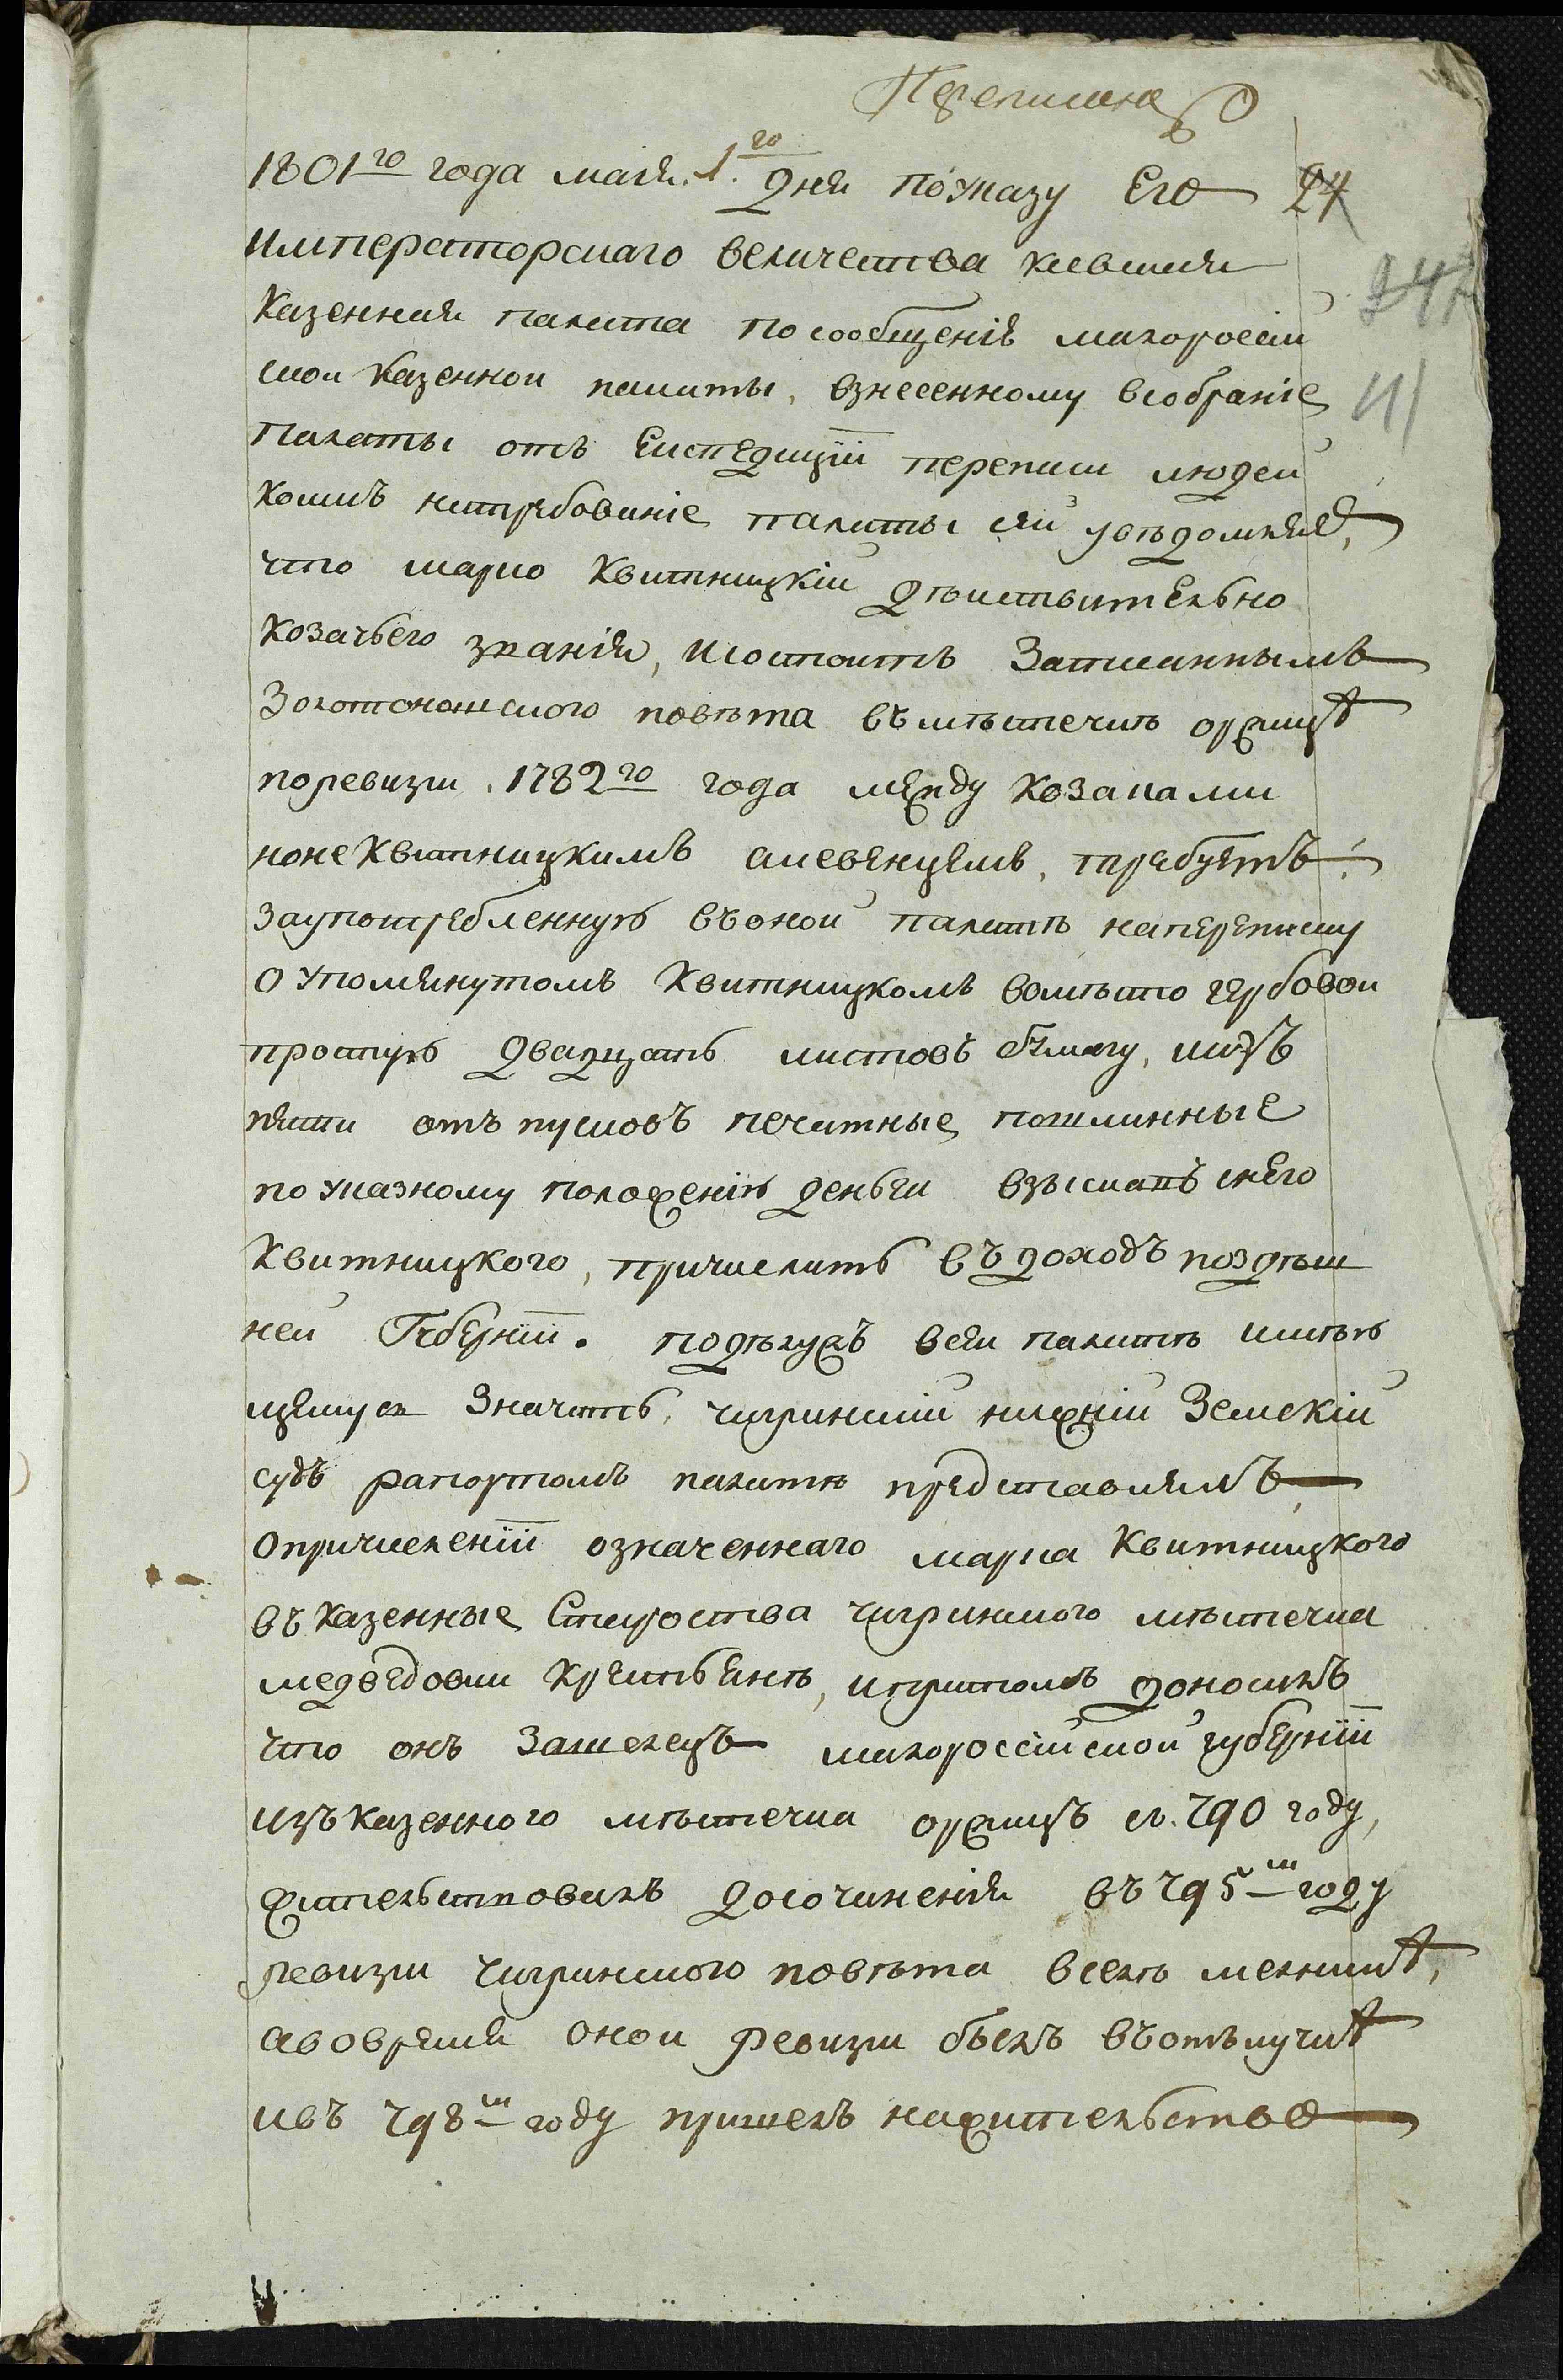 Переписана
1801го года маія. 1.го дня поуказу Его
24
императорскаго величества киевская
24
казенная палата посообщенію малоросій
ской казенной палаты, взнесенному всобраніе
41
палаты отъ Експедиціи переписи людей
коимъ натребованіе палаты сей увѣдомляя,
что марко Квитницкій дѣиствительно
козачьего званія, исостоитъ Записаннымъ
Золотоношского повѣта въмѣстечкѣ оржицѣ
поревизіи 1782го года между козаками
ноне Квитницкимъ алевенцемъ, требуетъ:
заупотребленную въоной палатѣ напереписку
оупомянутомъ Квитницкомъ вомѣсто гербовой
простую двадцать листовъ бумагу, иизъ
пяти отъпусковъ печатные пошлинные
поуказному положенію деньги взыскавъ снего
Квитницкого, причислить въдоходъ поздѣш
ней Губерніи. подѣлужъ всей палатѣ имѣю
щемуся Значитъ, чигринскій нижній Земскій
судъ рапортомъ палатѣ представлялъ,
опричисленіи означеннаго марка Квитницкого
въказенные Староства чигринского мѣстечка
медведовки крестьянѣ, ипритомъ доносилъ
что онъ Зашелецъ малоросійской губерніи
изъказенного мѣстечка оржицъ съ 790 году,
жителствовалъ досочиненія въ 795м году
ревизіи чигринского повѣта вселѣ мельникѣ,
авовремя оной ревизіи былъ въотълучкѣ
ивъ 798м году пришелъ нажителство